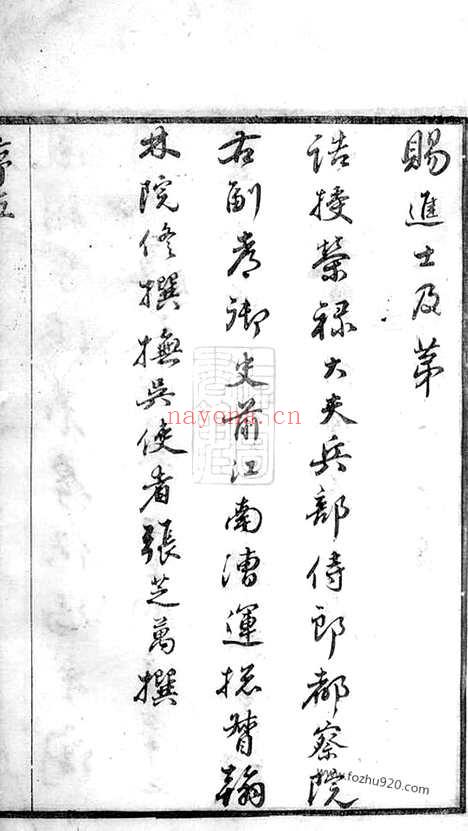 賜進士及苐
誥授榮祿大夫兵部侍郎都察院
右副都御史前江南漕運捴督翰
林院修撰撫吳使者張芝萬撰
序五
nayona.cn
www.fozhu920.com